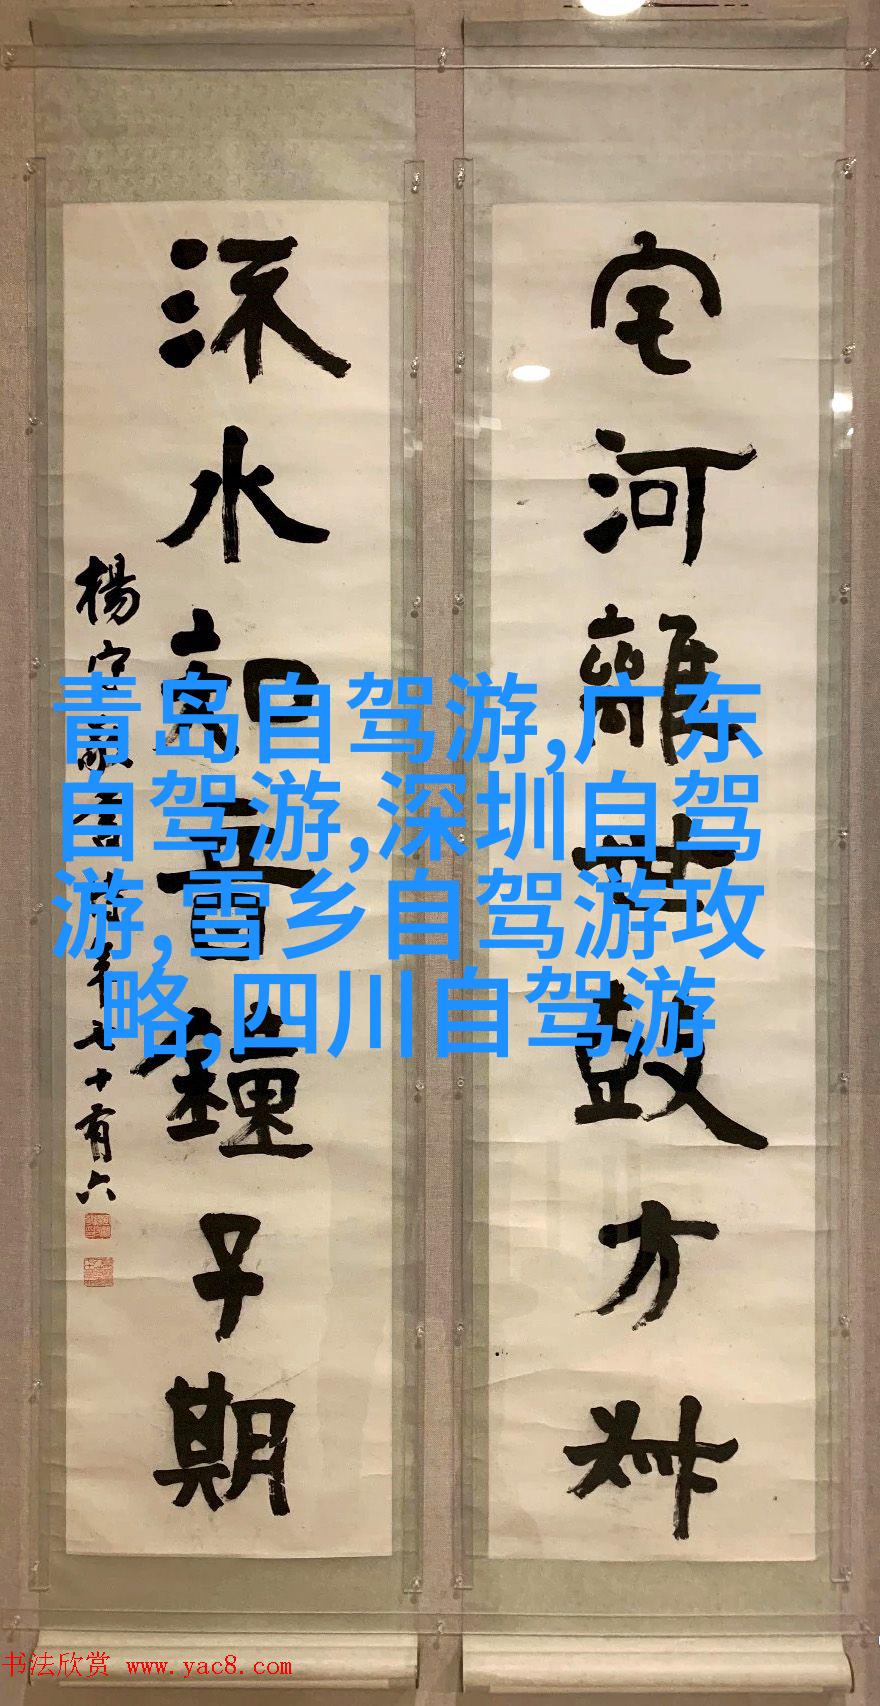 宅河離世鼓方叔
流水知音鐘子期
楊守敬書時年七十有六
青岛自驾游,广东
自驾游,深圳自驾
游,雪乡自驾游攻
略,四川自驾游
书法欣赏 www.yac8.com